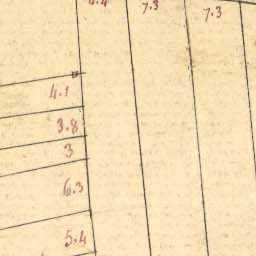 7.3
7.3
4.1
3.8
3
6.3
5.4